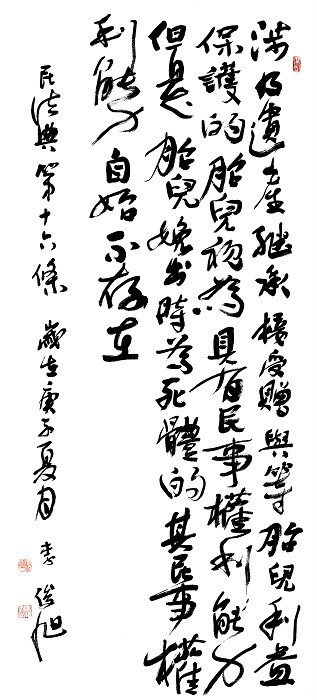 涉及遺產繼承接受贈與等胎兒利益
保護的胎兒視為具有民事權利能力
但是胎兒娩出時為死體的其民事權
利能力自始不存在
民法典第十六條 歲在庚子夏月 李俊旭